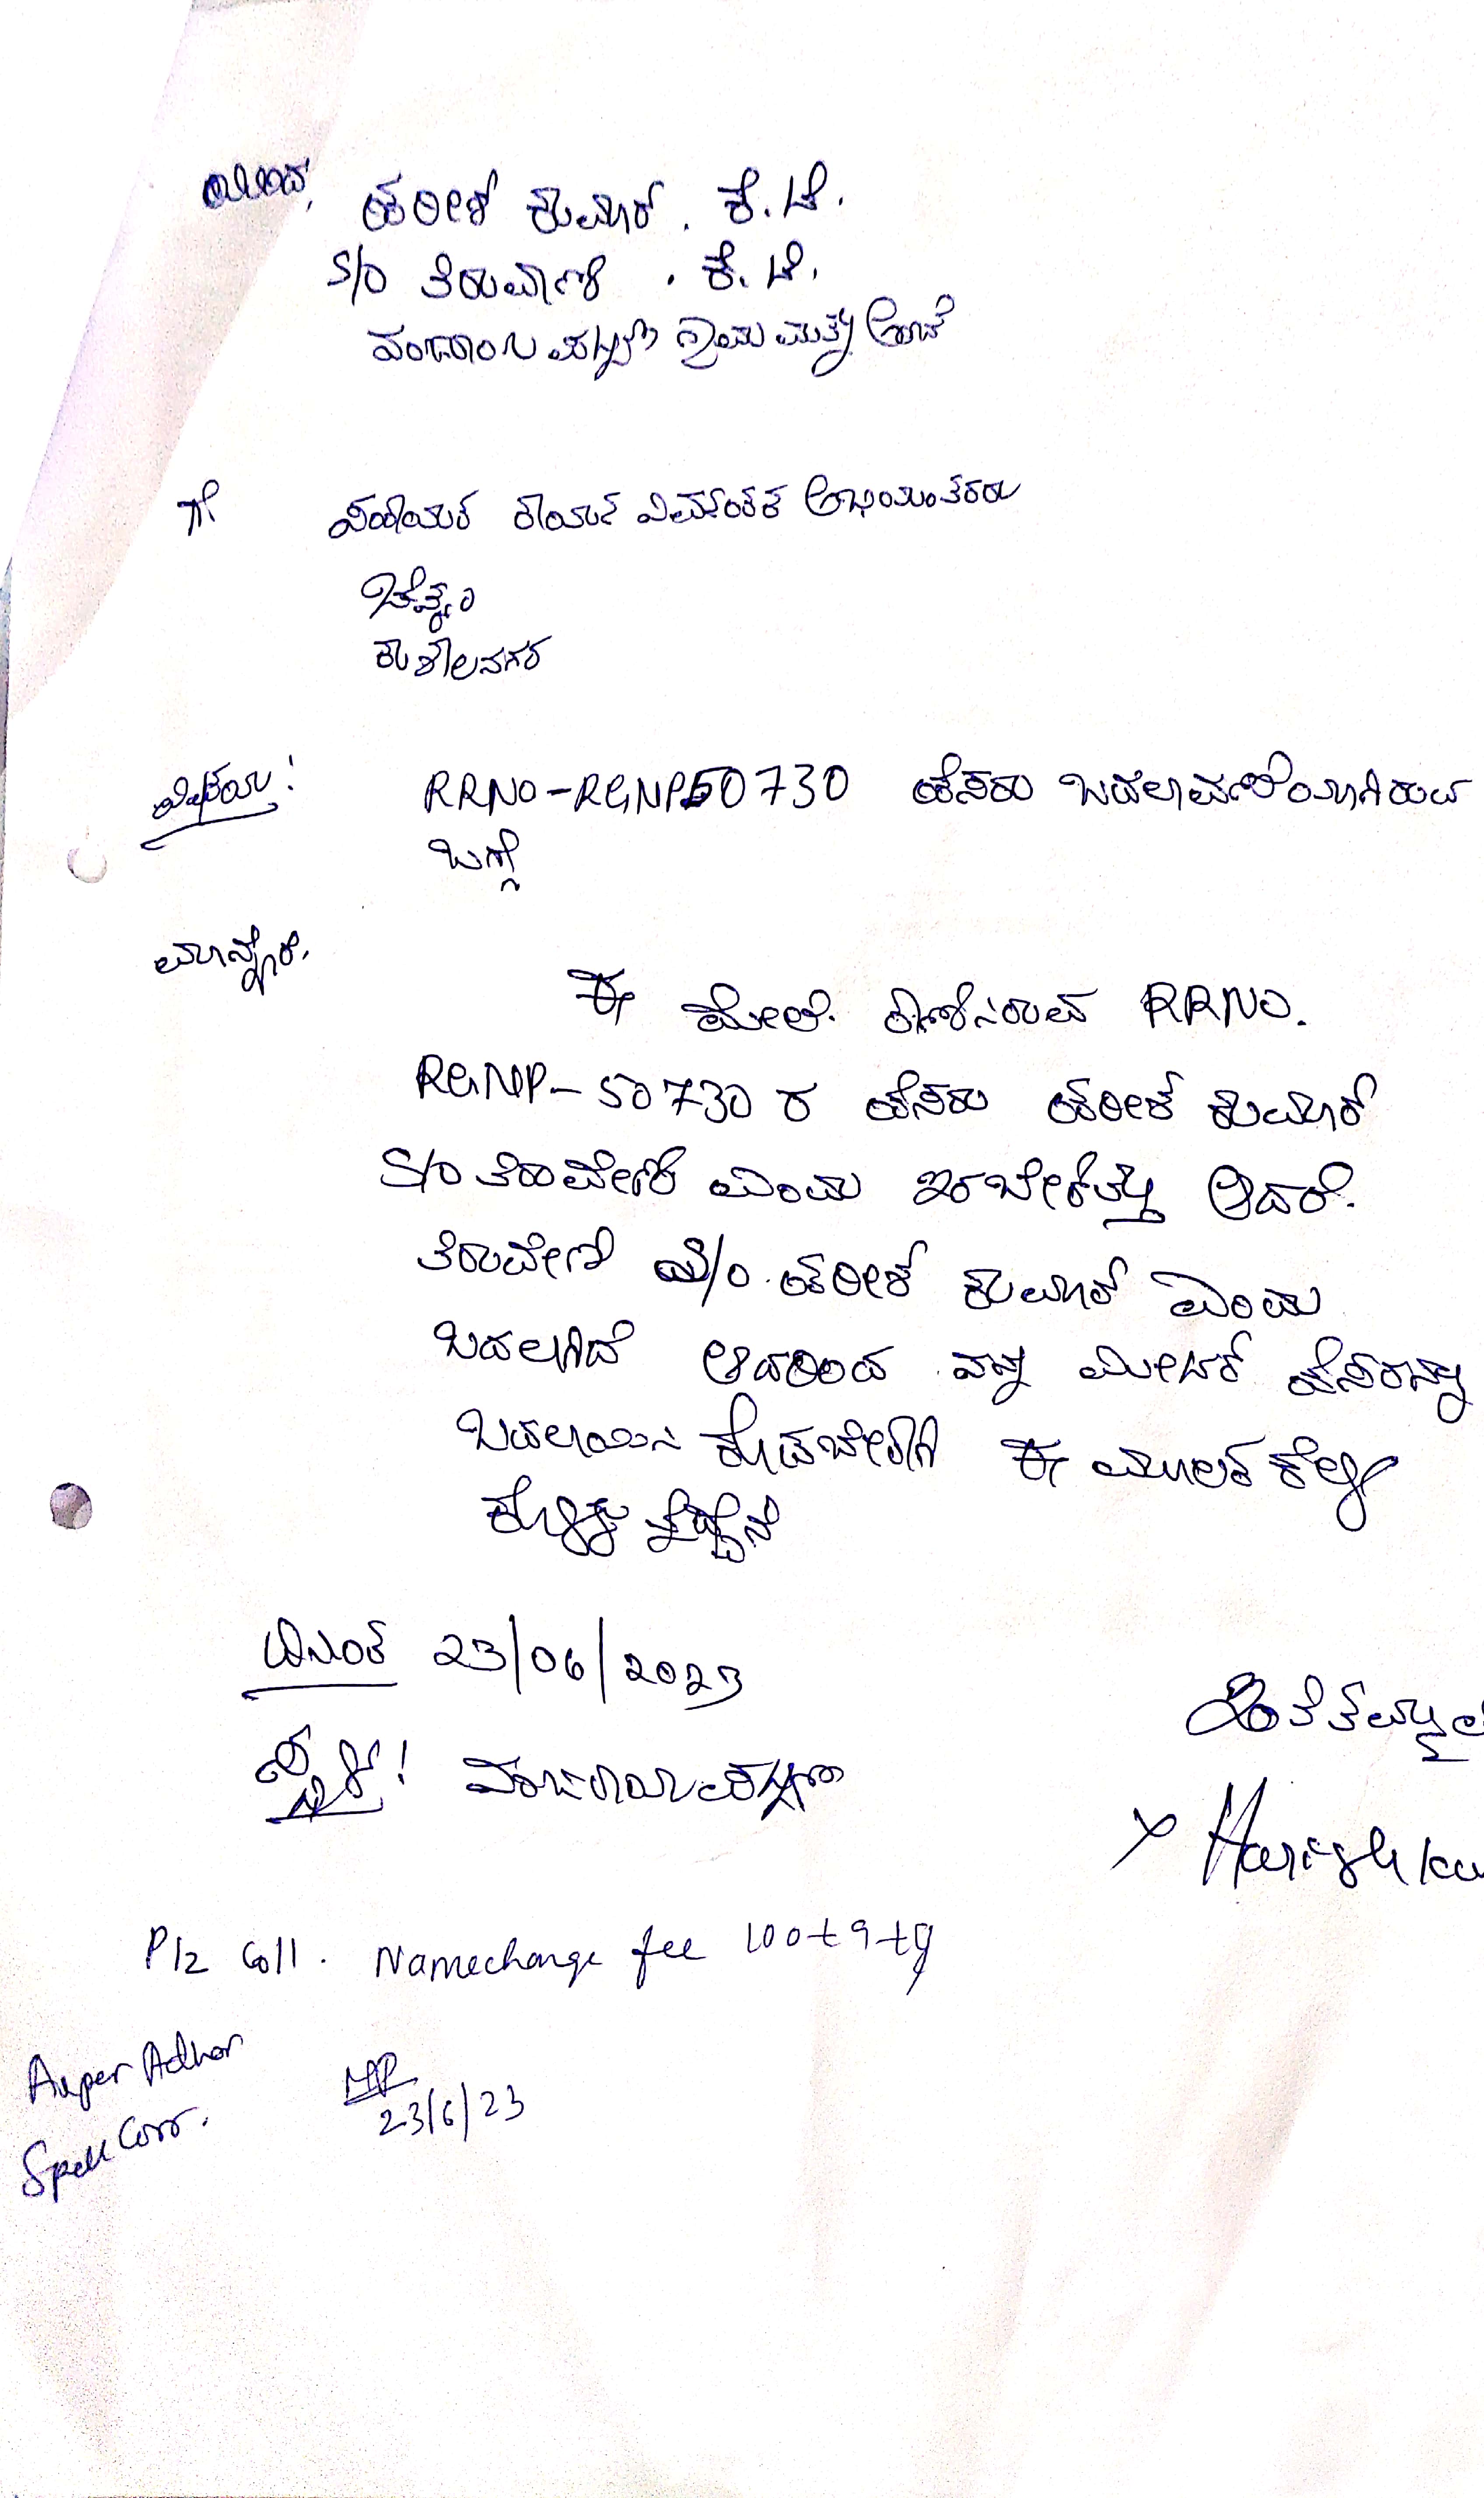 ಯಿಂದ, ಹರೀಶ್ ಕುಮಾರ್. ಕೆ.ಟಿ.
S/O ತಿರುವಾಣಿ . ಕೆ.ಟಿ.
ಗ್ರಾಮ ಮತ್ತು ಅಂಚೆ
ಗೆ ಸಹಾಯಕ ಕಾರ್ಯ ಅಭಿಯಂತರರು
ಚೆಸ್ಕಾಂ
ಕುಶಾಲನಗರ
ವಿಷಯ: RRNO-RGNP50730 ಹೆಸರು ಬದಲಾವಣೆಯಾಗಿರುವ
ಬಗ್ಗೆ
ಮಾನ್ಯರೆ,
ಈ ಮೇಲೆ ಕಾಣಿಸಿರುವ RRNO.
RGNP-50730 ರ ಹೆಸರು ಹರೀಶ್ ಕುಮಾರ್
S/O ತಿರುವೇಣಿ ಎಂದು ಇರಬೇಕಿತ್ತು ಆದರೆ.
ತಿರುವೇಣಿ ಹರೀಶ್ ಕುಮಾರ್ ಎಂದು
ಬದಲಾಗಿದೆ ಆದರಿಂದ ನನ್ನ ಮೀಟರ್ ಹೆಸರನ್ನು
ಬದಲಾಯಿಸಿ ಕೊಡಬೇಕಾಗಿ ಈ ಮೂಲಕ ಕೇಳಿ
ಕೊಳ್ಳುತ್ತಿದ್ದೇನೆ
ದಿನಾಂಕ 23/06/2023
ಸ್ಥಳ:
ಇಂತಿ ತಮ್ಮ
x Harish ku
Plz Coll. Namechange fee 100+9+9
As per Adhar
Spell Corr.
23/6/23